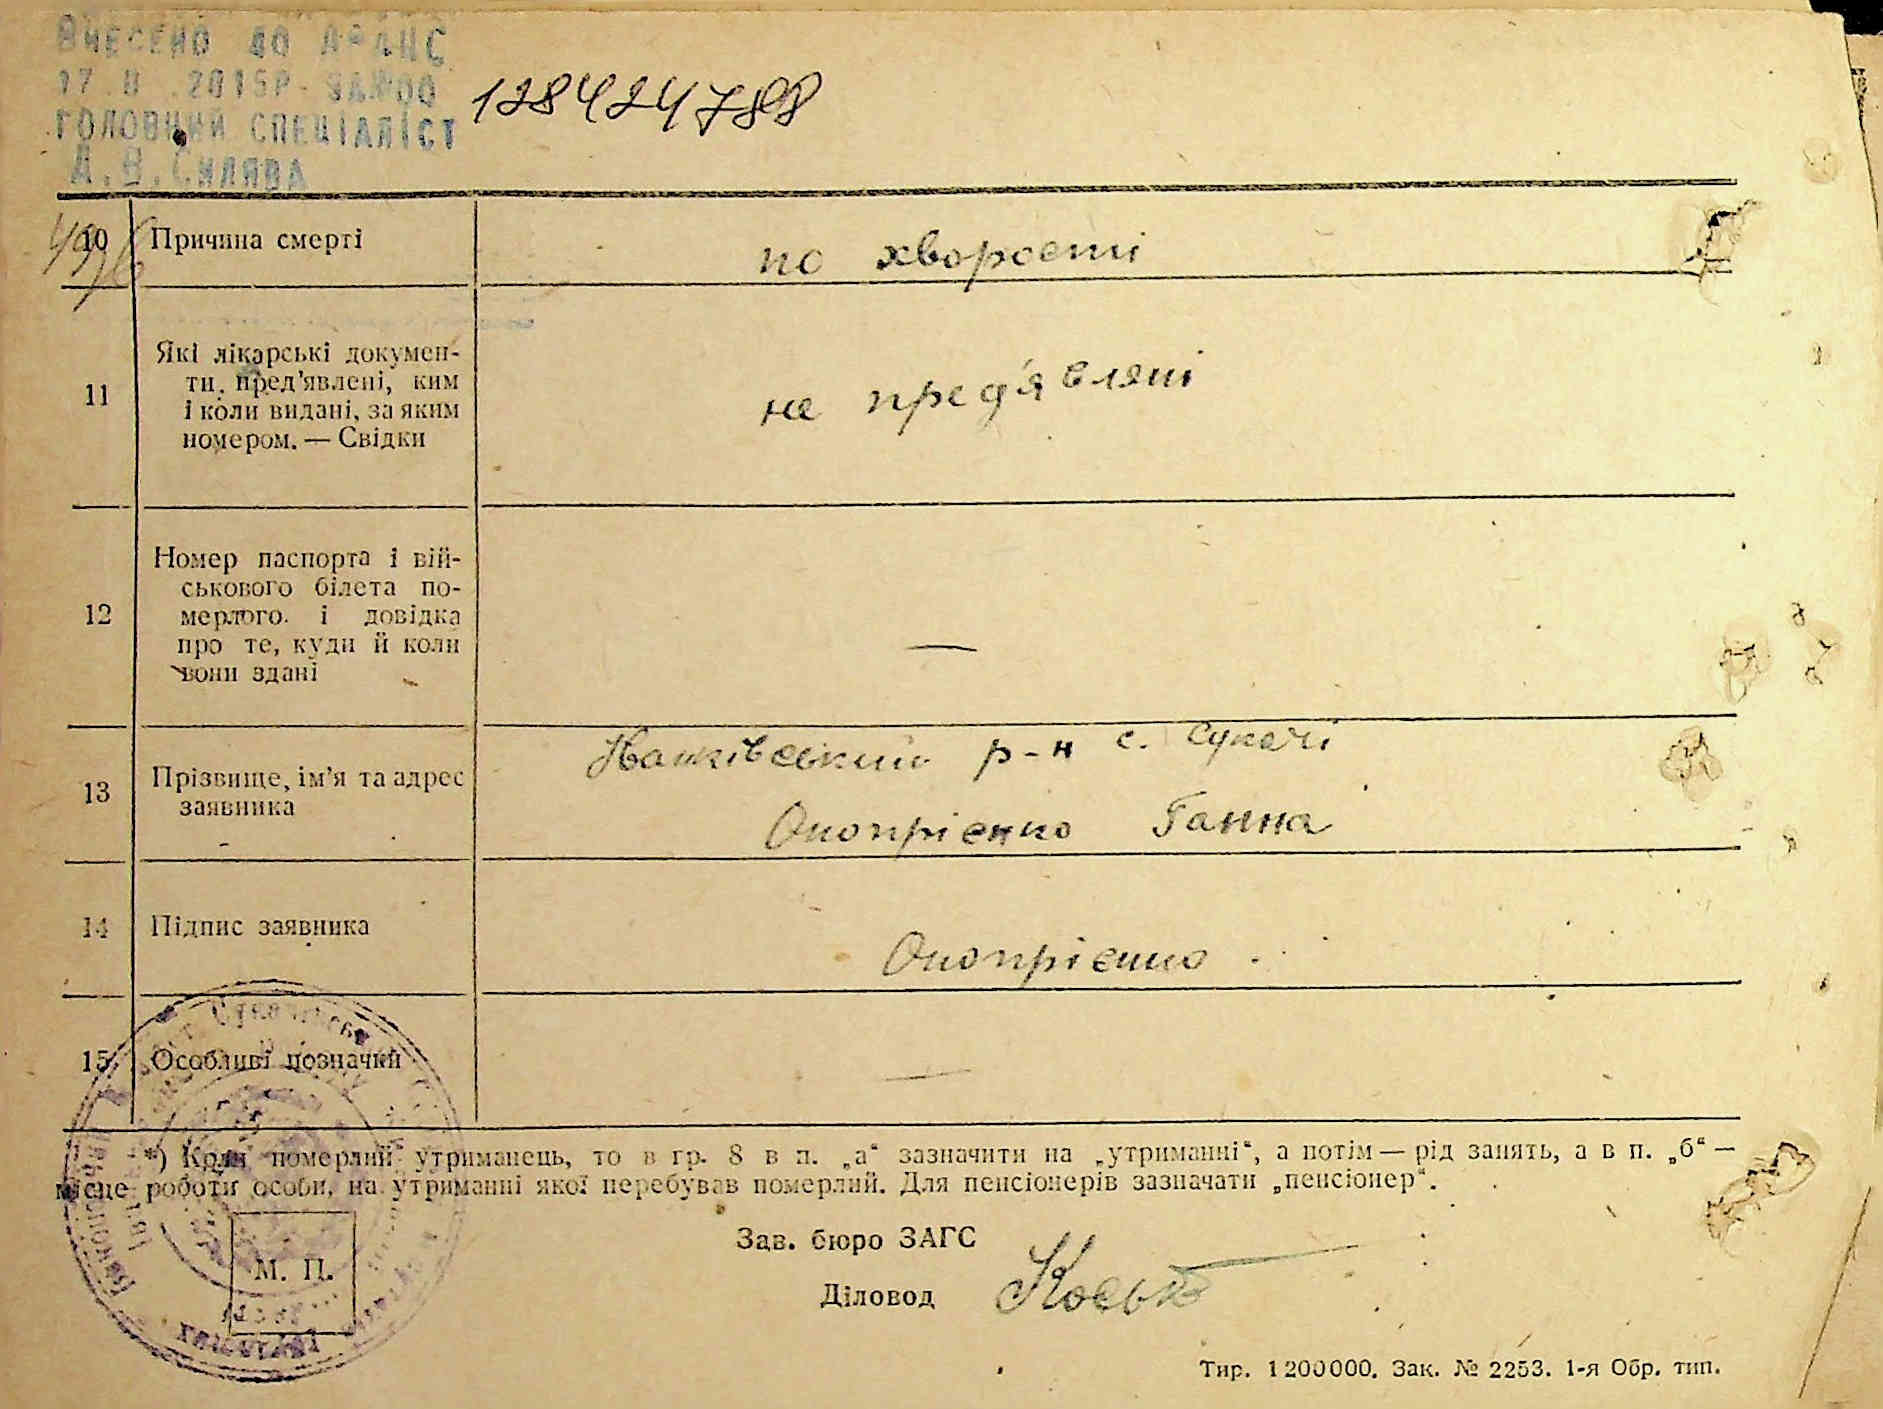 ВНЕСЕНО ДО ДРАЦС
ГОЛОВНИЙ СПЕЦІАЛІСТ
128424788
10 Причина смерті
по хворості
11 Які лікарські докумен-
ти, пред'явлені, ким
і коли видані, за яким
номером. — Свідки
не пред'являні
12 Номер паспорта і вій-
ськового білета по-
мерлого. і довідка
про те, куди й коли
вони здані
—
13 Прізвище, ім'я та адрес
заявника
р-н с. Сукачі
Онопрієнко Ганна
14 Підпис заявника
Онопрієнко
15 Особливі позначки
—
*) Коли померлий утриманець, то в гр. 8 в п. „а“ зазначити на „утриманні“, а потім — рід занять, а в п. „б“ —
місце роботи особи, на утриманні якої перебував померлий. Для пенсіонерів зазначати „пенсіонер“.
Зав. бюро ЗАГС
М. П.
Діловод
Тир. 1200000. Зак. № 2253. 1-я Обр. тип.